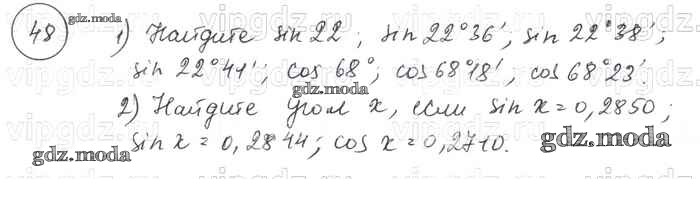 48 1) Найдите sin 22°; sin 22°36'; sin 22°38';
sin 22°41'; cos 68°; cos 68°18'; cos 68°23'
2) Найдите угол x, если sin x = 0,2850;
sin x = 0,2844; cos x = 0,2710.
gdz.moda
gdz.moda
gdz.moda
gdz.moda
vipgdz.ru vipgdz.ru vipgdz.ru